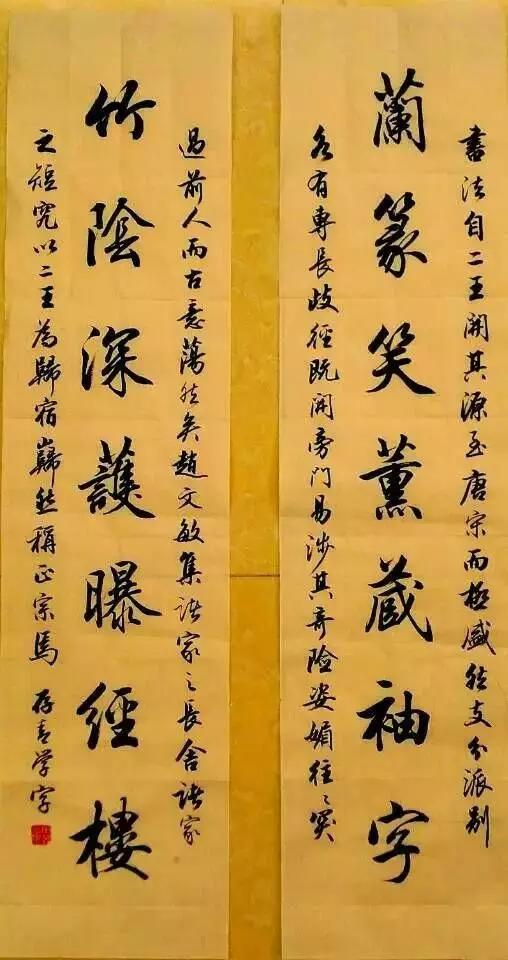 書法自二王開其源至唐宋而極盛然支分派别
蘭篆笑薰蔵袖字
各有專長歧徑既開旁門易涉其奇險姿媚往〻突
過前人而古意蕩然矣趙文敏集諸家之長舍諸家
竹陰深護曝經樓
之短究以二王為歸宿巋然稱正宗焉 存青学字